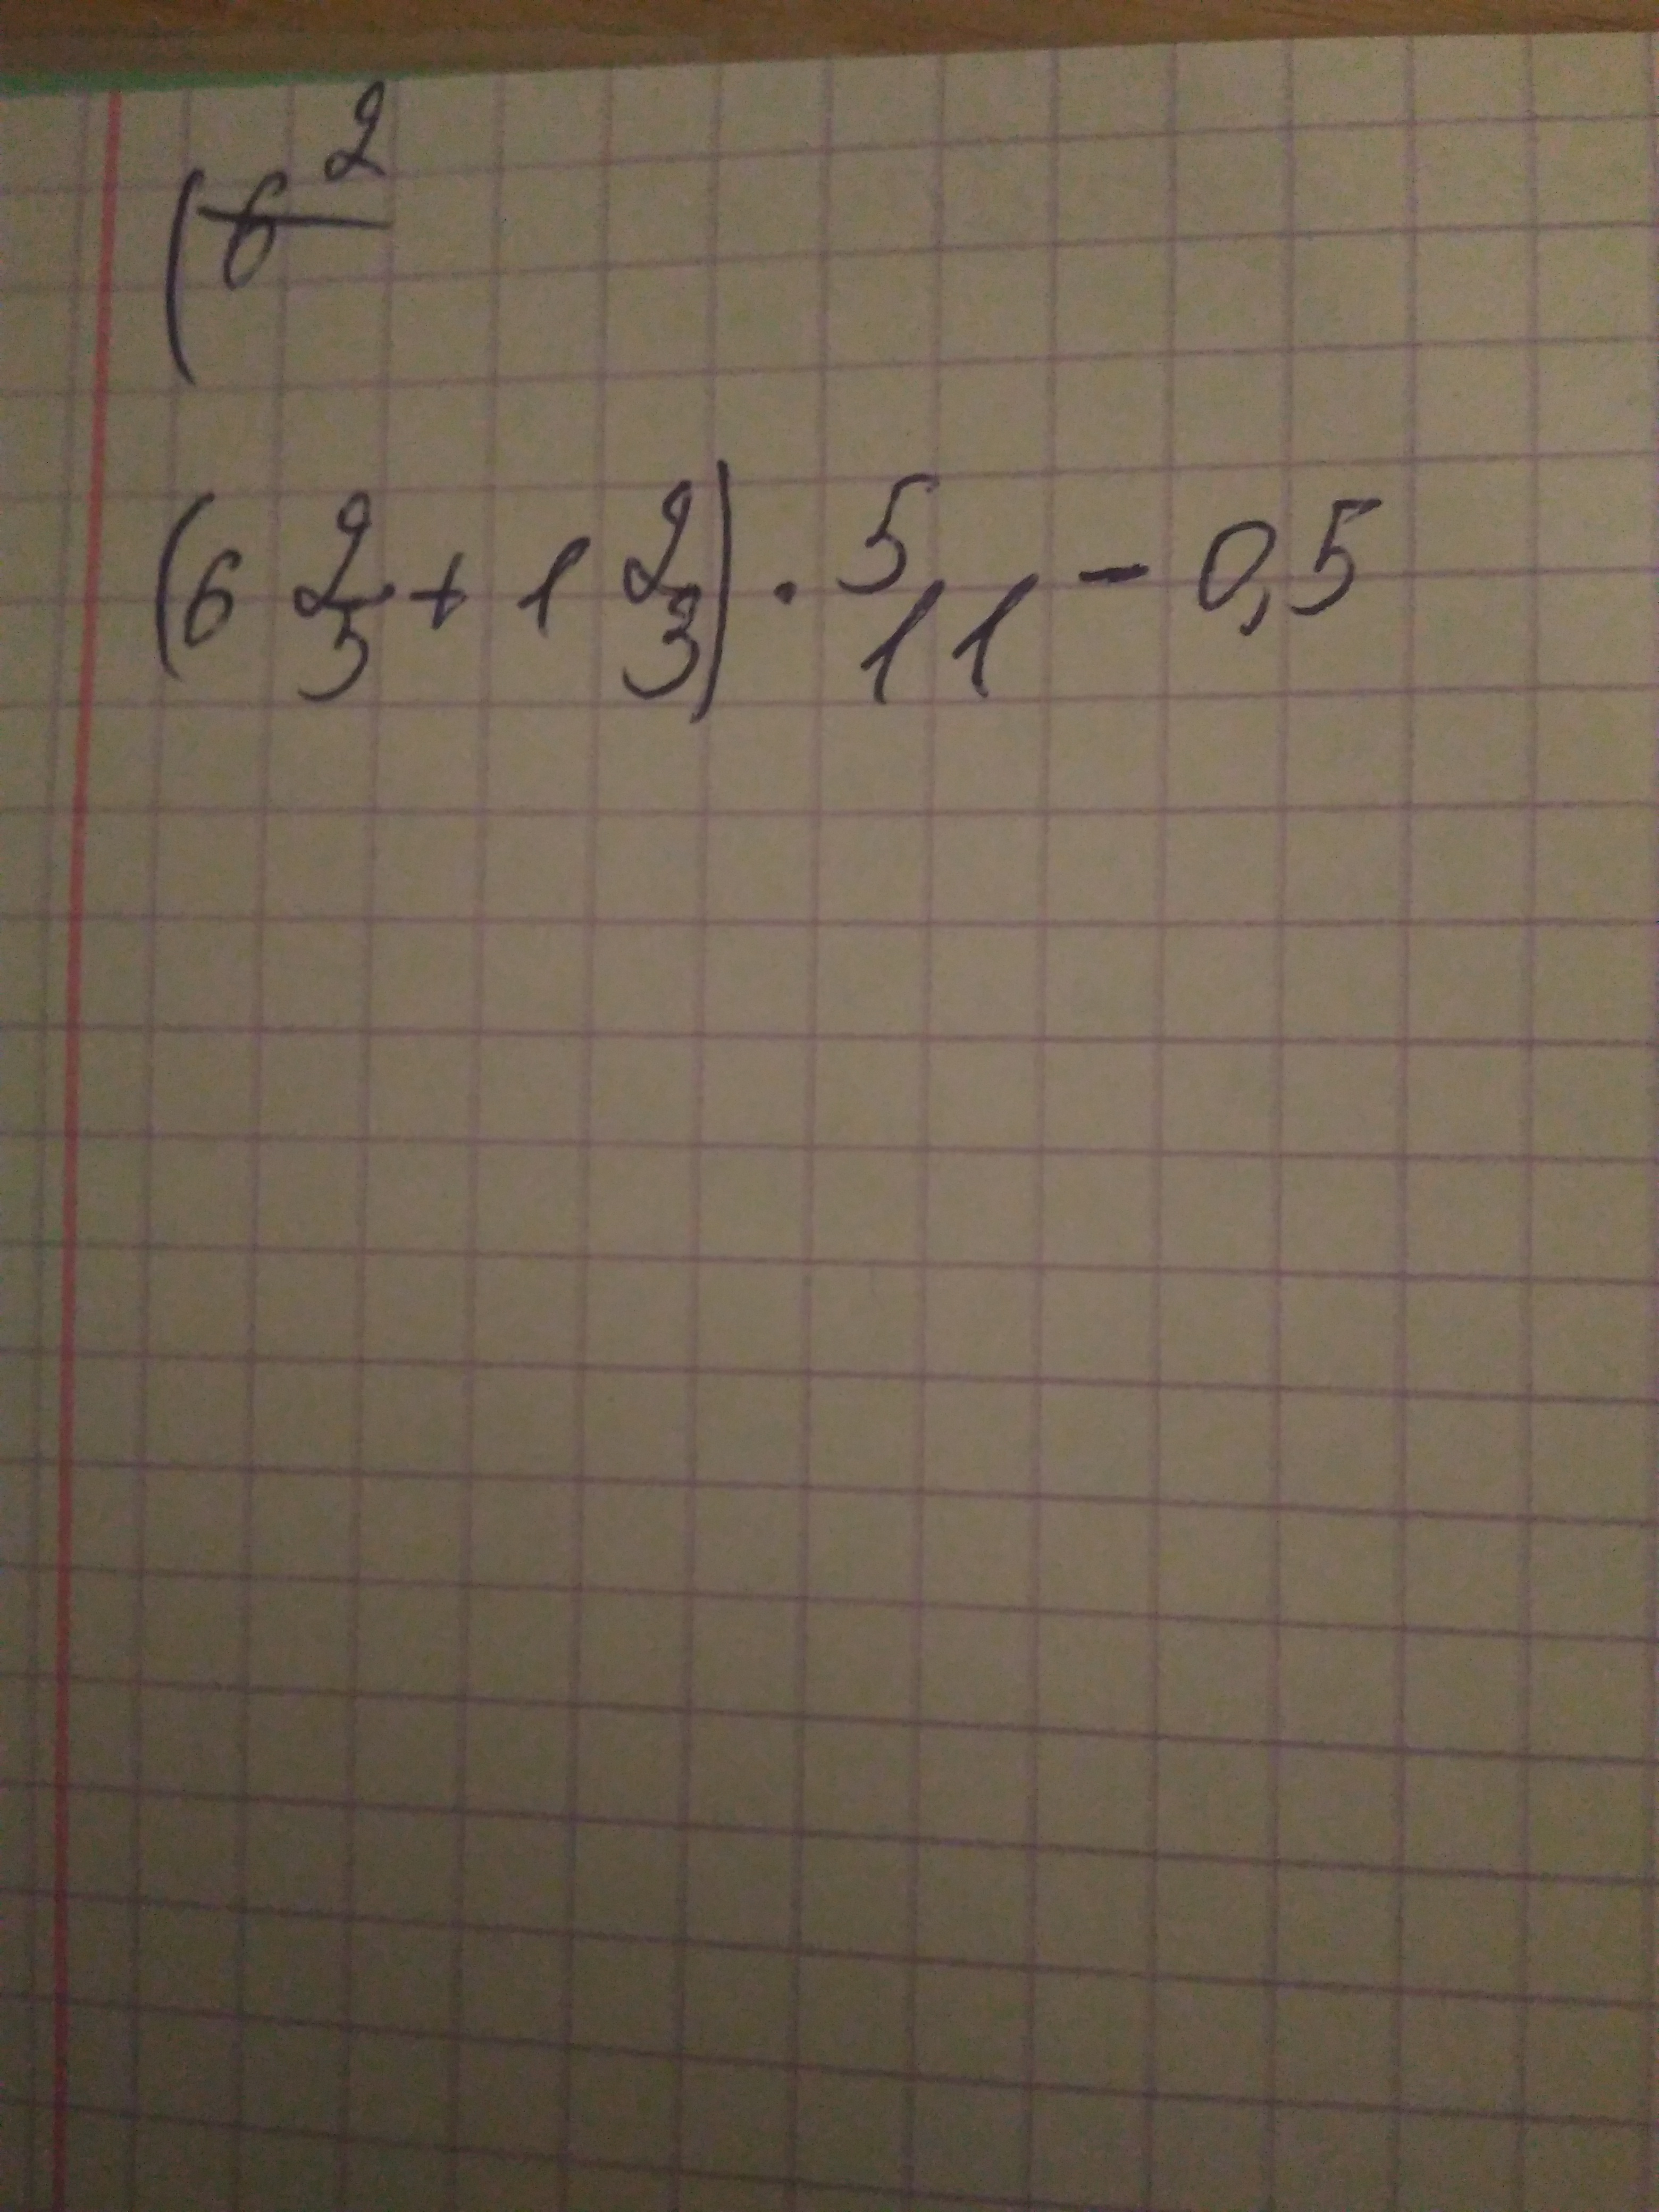 (6 2
(6 2/5 + 1 2/3) · 5/11 - 0,5